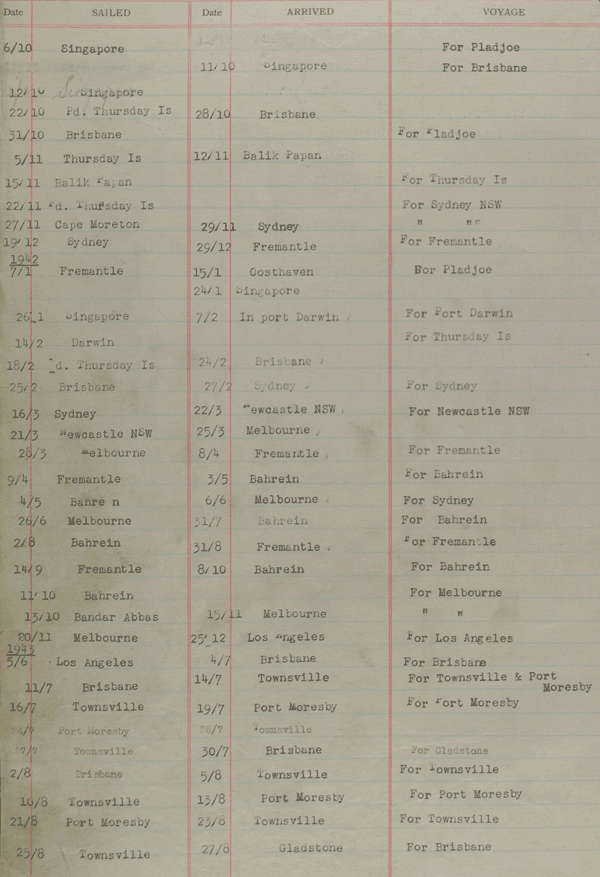 Date SAILED Date ARRIVED VOYAGE
6/10 Singapore For Pladjoe
11/10 Singapore For Brisbane
12/10 Singapore
22/10 Pd. Thursday Is 28/10 Brisbane
31/10 Brisbane For Pladjoe
5/11 Thursday Is 12/11 Balik Papan
15/11 Balik Papan For Thursday Is
22/11 Pd. Thursday Is For Sydney NSW
27/11 Cape Moreton 29/11 Sydney " ""
19/12 Sydney 29/12 Fremantle For Fremantle
1942
7/1 Fremantle 15/1 Oosthaven For Pladjoe
24/1 Singapore
26/1 Singapore 7/2 In port Darwin For Port Darwin
14/2 Darwin For Thursday Is
18/2 Pd. Thursday Is 24/2 Brisbane
25/2 Brisbane 27/2 Sydney For Sydney
16/3 Sydney 22/3 Newcastle NSW For Newcastle NSW
21/3 Newcastle NSW 25/3 Melbourne
28/3 Melbourne 8/4 Fremantle For Fremantle
9/4 Fremantle 3/5 Bahrein For Bahrein
4/5 Bahre n 6/6 Melbourne For Sydney
26/6 Melbourne 31/7 Bahrein For Bahrein
2/8 Bahrein 31/8 Fremantle For Fremantle
14/9 Fremantle 8/10 Bahrein For Bahrein
11/10 Bahrein For Melbourne
13/10 Bandar Abbas 15/11 Melbourne " "
20/11 Melbourne 25/12 Los Angeles For Los Angeles
1943
5/6 Los Angeles 4/7 Brisbane For Brisbane
11/7 Brisbane 14/7 Townsville For Townsville & Port
Moresby
16/7 Townsville 19/7 Port Moresby For Port Moresby
Port Moresby Townsville
27/7 Townsville 30/7 Brisbane For Gladstone
2/8 Brisbane 5/8 Townsville For Townsville
10/8 Townsville 13/8 Port Moresby For Port Moresby
21/8 Port Moresby 23/8 Townsville For Townsville
25/8 Townsville 27/8 Gladstone For Brisbane